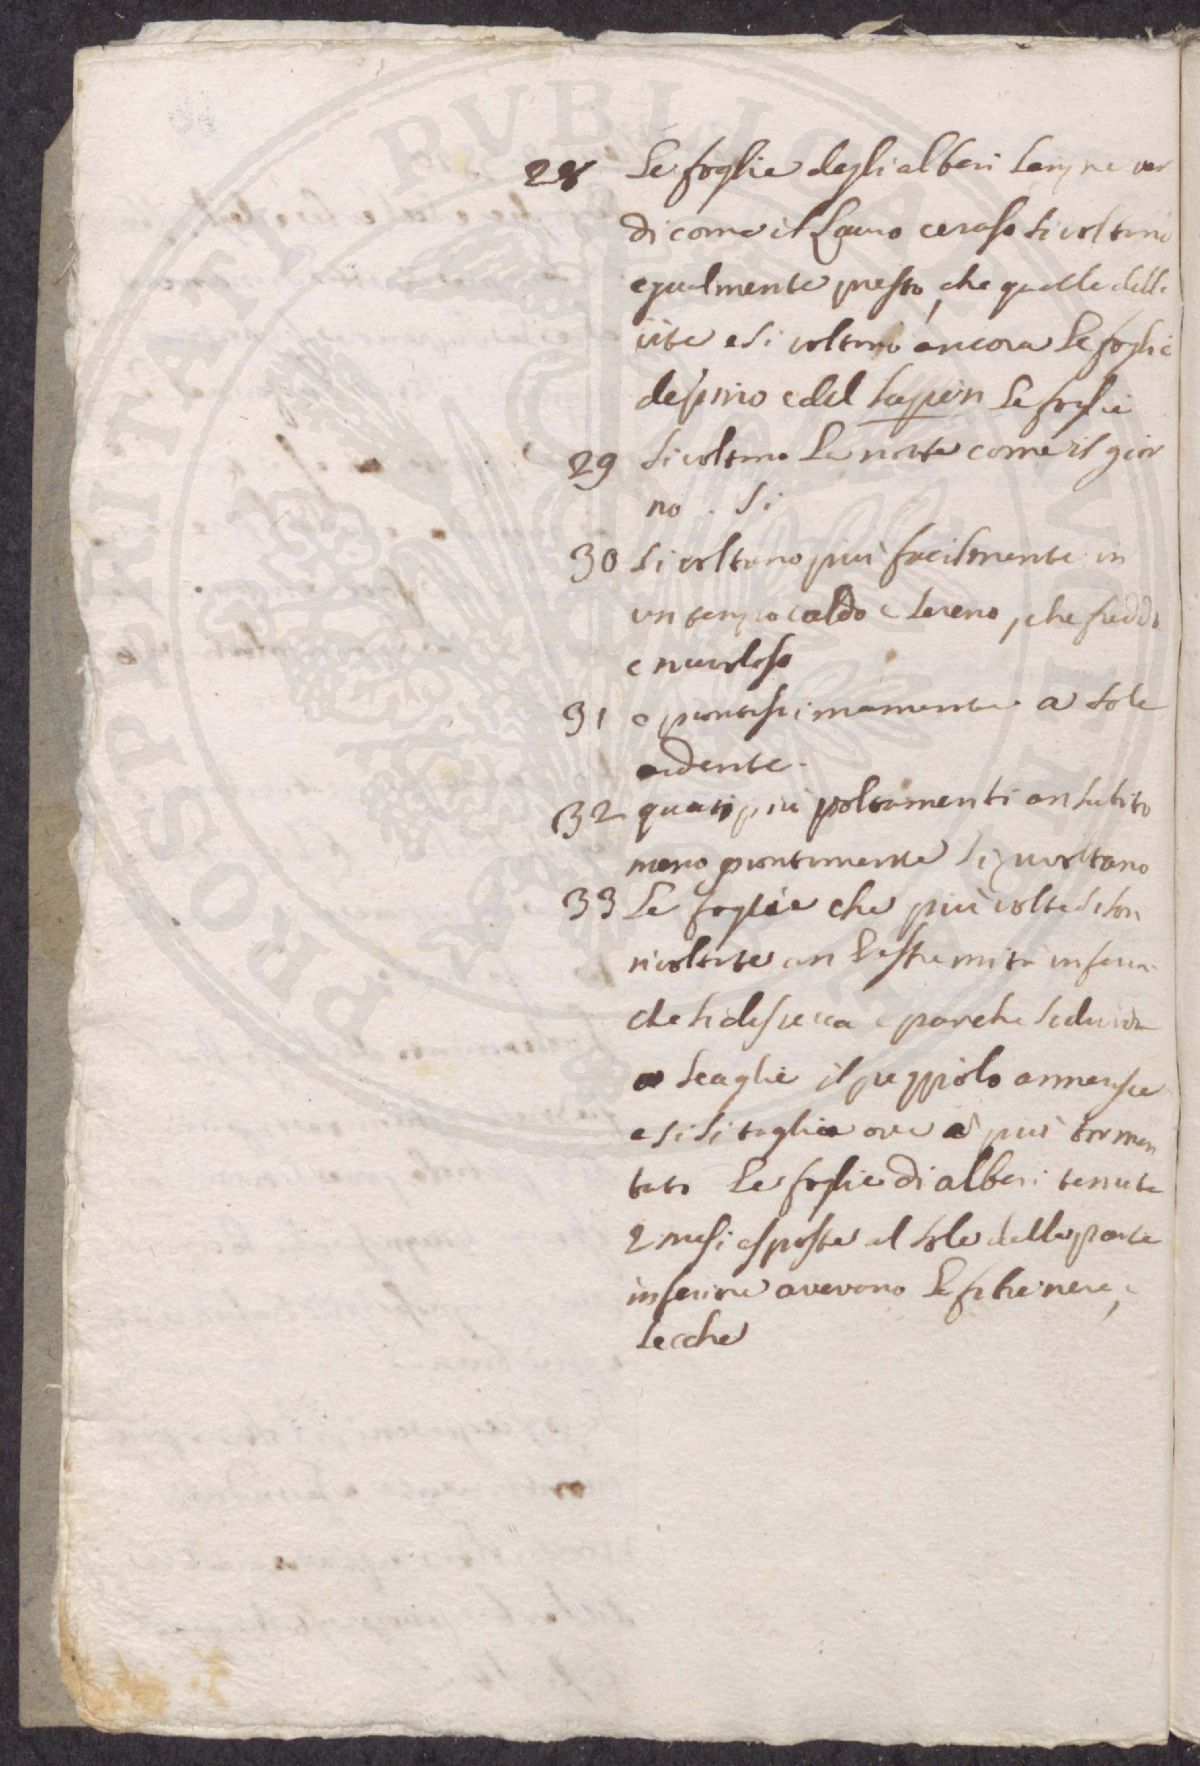 28 Le foglie degli alberi sempre ver
di come il Lauro ceraso si voltano
egualmente presto, che quelle delle
vite e si voltano ancora le foglie
del pino e del sapin Le foglie
29 si voltano la notte come il gior
no . Si
30 Si voltano più facilmente in
un tempo caldo e sereno, che freddo
e nuvoloso
31 e prontissimamente a sole
ardente.
32 quasi più voltamenti an subito
meno prontamente si rivoltano
33 Le foglie che più volte si son
rivoltate an l'estremità inferior
che si disecca e par che si divida
a scaglie il picciolo annerisce
e si si taglia ove è più tormen
tato Le foglie di alberi tenute
2 mesi esposte al sole dalla parte
inferiore avevano le fibre nere, e
secche
PROSPERITATI PVBLICAE